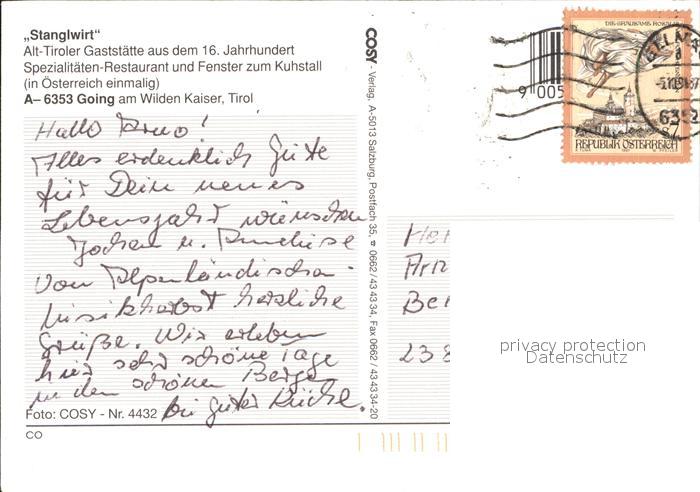 „Stanglwirt"
Alt-Tiroler Gaststätte aus dem 16. Jahrhundert
Spezialitäten-Restaurant und Fenster zum Kuhstall
(in Österreich einmalig)
A– 6353 Going am Wilden Kaiser, Tirol
Hallo Arno!
Alles erdenklich Gute
für Dein neues
Lebensjahr wünschen
Jochen u.
vom Alpenländischen
Musikherbst herzliche
Grüße. Wir erleben
hier sehr schöne Tage
in den schönen Bergen
bei guter Küche.
Foto: COSY - Nr. 4432
CO
COSY - Verlag, A-5013 Salzburg, Postfach 35, ☎ 0662/43 43 34, Fax 0662 / 43 43 34-20
9 005
DIE GRAUSAME ROSALIA
S7
REPUBLIK ÖSTERREICH
6352
Her
Arn
Ber
238
privacy protection
Datenschutz